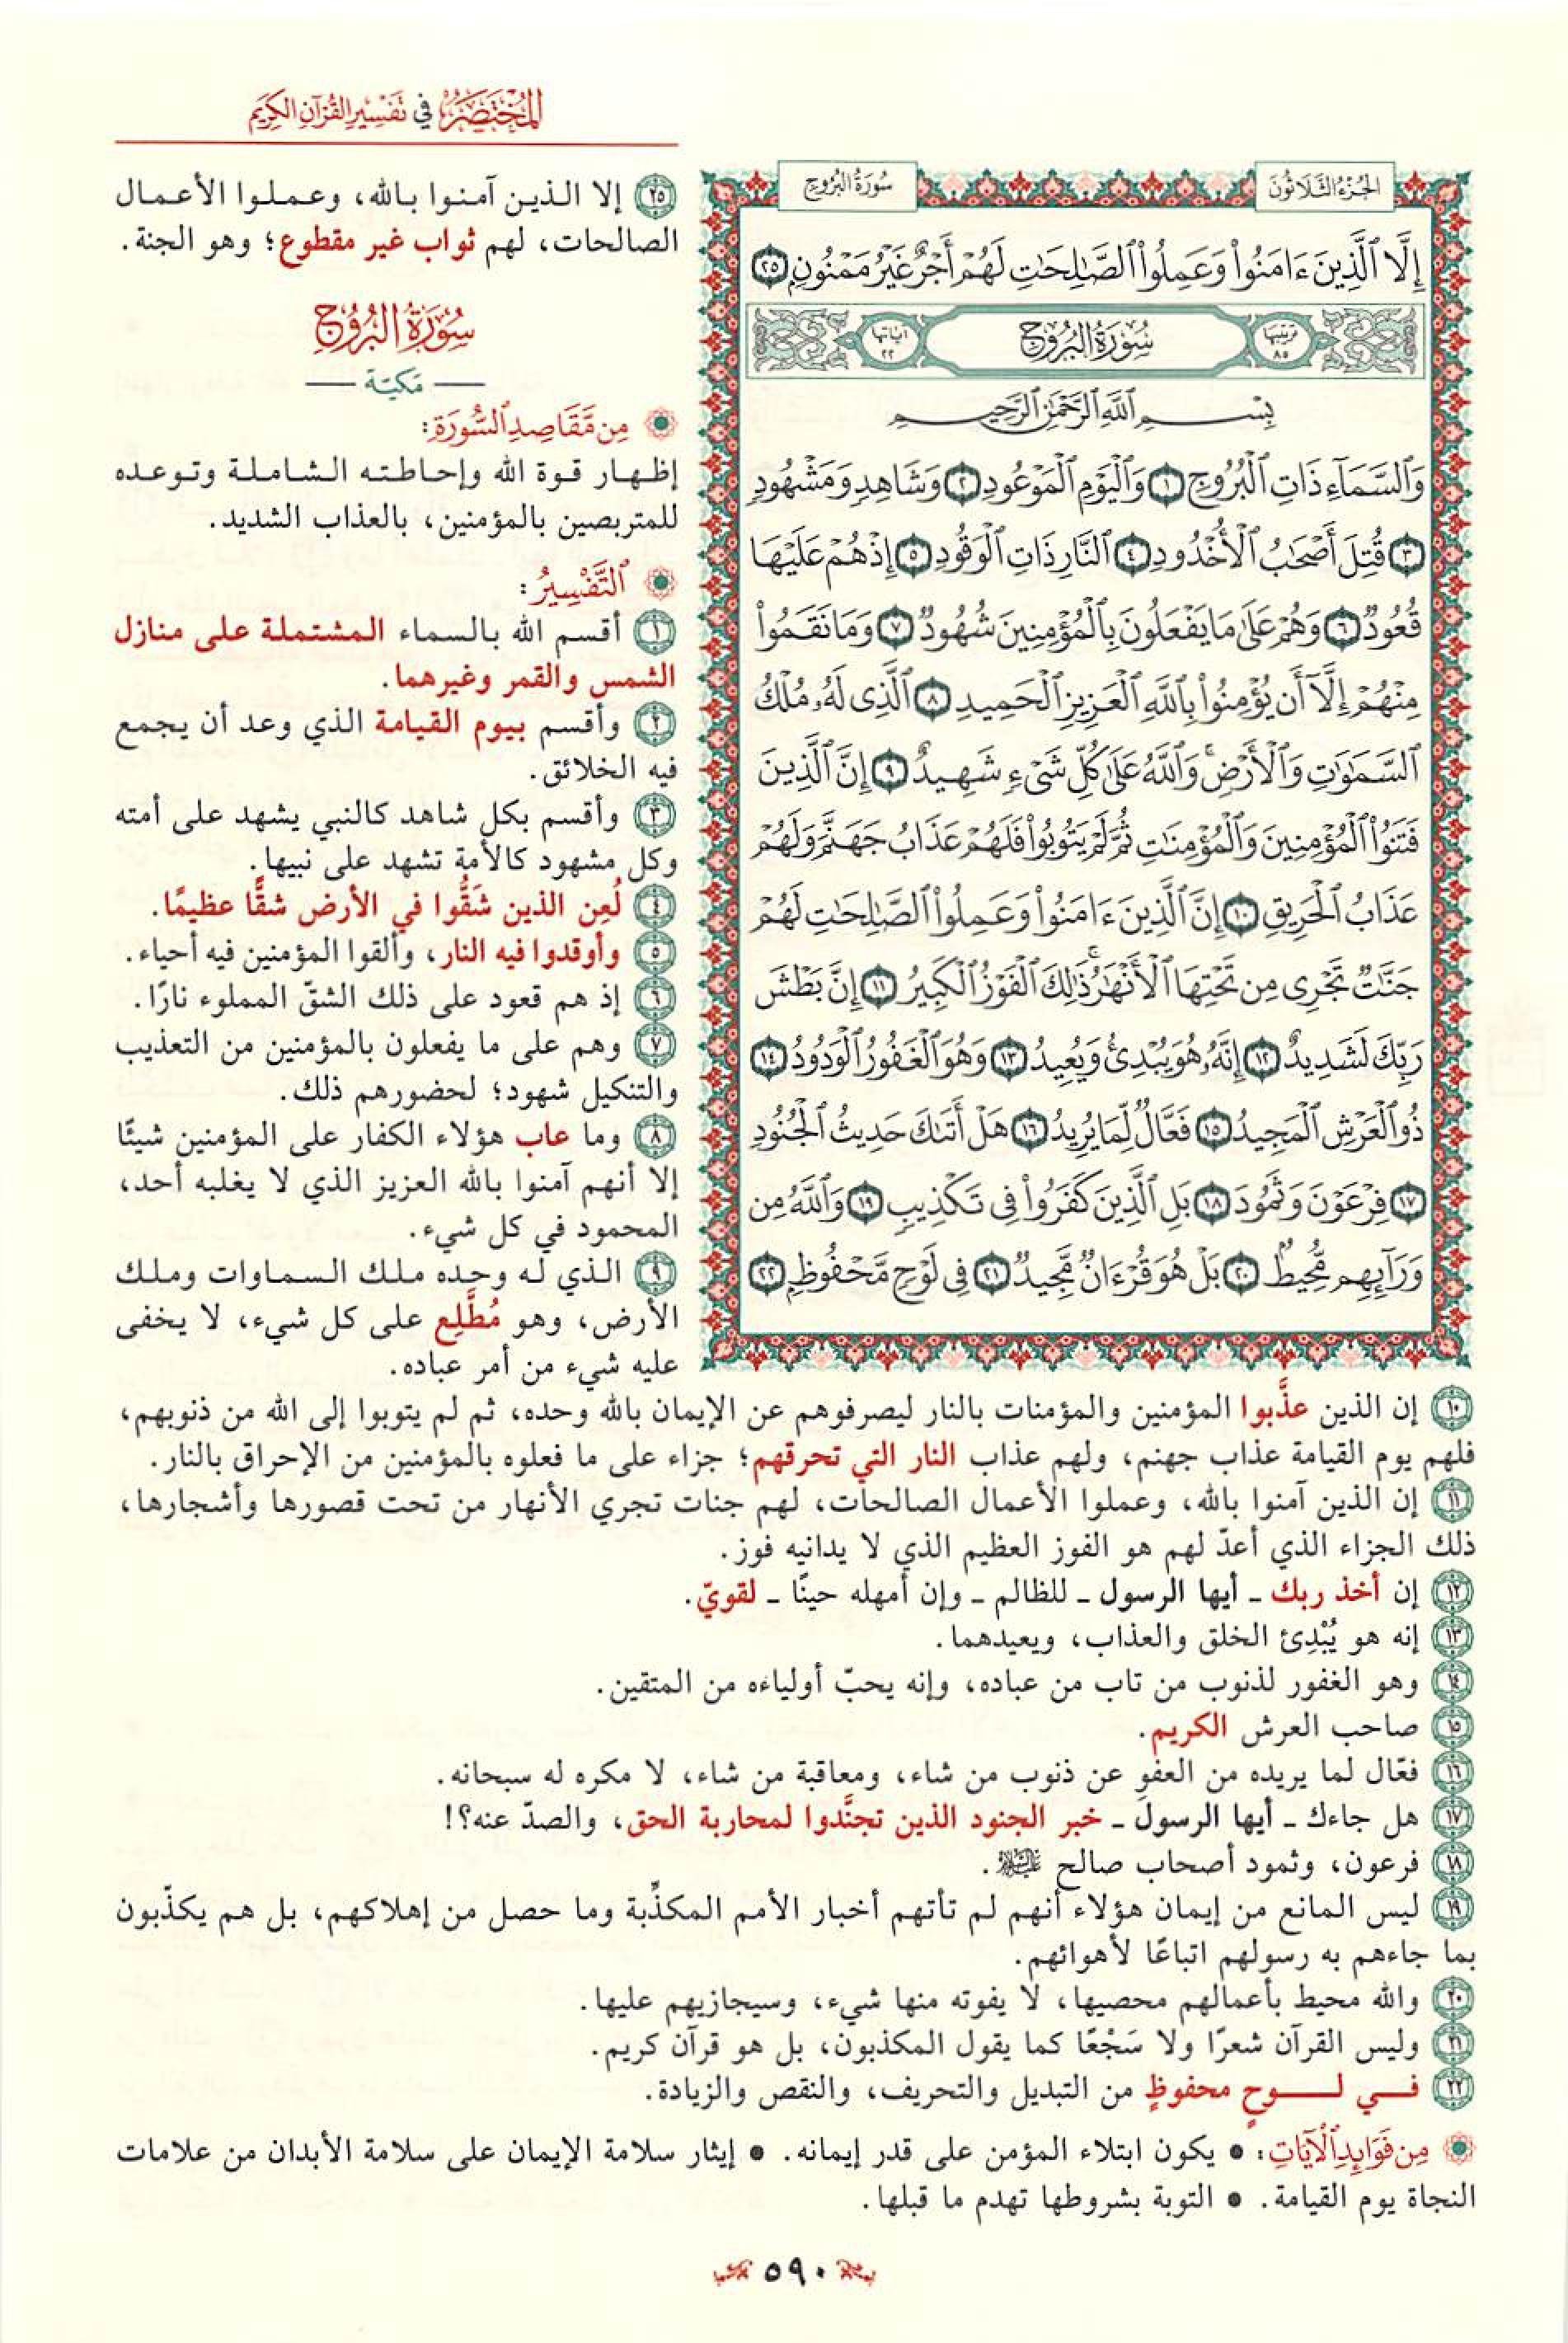 المختصر في تفسير القرآن الكريم
الجزء الثلاثون
سورة البروج
إِلَّا ٱلَّذِينَ ءَامَنُوا۟ وَعَمِلُوا۟ ٱلصَّٰلِحَٰتِ لَهُمْ أَجْرٌ غَيْرُ مَمْنُونٍۭ ٢٥
ترتيبها ٨٥
سُورَةُ البُرُوجِ
آياتها ٢٢
بِسْمِ ٱللَّهِ ٱلرَّحْمَٰنِ ٱلرَّحِيمِ
وَٱلسَّمَآءِ ذَاتِ ٱلْبُرُوجِ ١ وَٱلْيَوْمِ ٱلْمَوْعُودِ ٢ وَشَاهِدٍ وَمَشْهُودٍ
٣ قُتِلَ أَصْحَٰبُ ٱلْأُخْدُودِ ٤ ٱلنَّارِ ذَاتِ ٱلْوَقُودِ ٥ إِذْ هُمْ عَلَيْهَا
قُعُودٌ ٦ وَهُمْ عَلَىٰ مَا يَفْعَلُونَ بِٱلْمُؤْمِنِينَ شُهُودٌ ٧ وَمَا نَقَمُوا۟
مِنْهُمْ إِلَّآ أَن يُؤْمِنُوا۟ بِٱللَّهِ ٱلْعَزِيزِ ٱلْحَمِيدِ ٨ ٱلَّذِى لَهُۥ مُلْكُ
ٱلسَّمَٰوَٰتِ وَٱلْأَرْضِ ۚ وَٱللَّهُ عَلَىٰ كُلِّ شَىْءٍ شَهِيدٌ ٩ إِنَّ ٱلَّذِينَ
فَتَنُوا۟ ٱلْمُؤْمِنِينَ وَٱلْمُؤْمِنَٰتِ ثُمَّ لَمْ يَتُوبُوا۟ فَلَهُمْ عَذَابُ جَهَنَّمَ وَلَهُمْ
عَذَابُ ٱلْحَرِيقِ ١٠ إِنَّ ٱلَّذِينَ ءَامَنُوا۟ وَعَمِلُوا۟ ٱلصَّٰلِحَٰتِ لَهُمْ
جَنَّٰتٌ تَجْرِى مِن تَحْتِهَا ٱلْأَنْهَٰرُ ۚ ذَٰلِكَ ٱلْفَوْزُ ٱلْكَبِيرُ ١١ إِنَّ بَطْشَ
رَبِّكَ لَشَدِيدٌ ١٢ إِنَّهُۥ هُوَ يُبْدِئُ وَيُعِيدُ ١٣ وَهُوَ ٱلْغَفُورُ ٱلْوَدُودُ ١٤
ذُو ٱلْعَرْشِ ٱلْمَجِيدُ ١٥ فَعَّالٌ لِّمَا يُرِيدُ ١٦ هَلْ أَتَىٰكَ حَدِيثُ ٱلْجُنُودِ
١٧ فِرْعَوْنَ وَثَمُودَ ١٨ بَلِ ٱلَّذِينَ كَفَرُوا۟ فِى تَكْذِيبٍ ١٩ وَٱللَّهُ مِن
وَرَآئِهِم مُّحِيطٌۢ ٢٠ بَلْ هُوَ قُرْءَانٌ مَّجِيدٌ ٢١ فِى لَوْحٍ مَّحْفُوظٍۭ ٢٢
٢٥ إلا الذين آمنوا بالله، وعملوا الأعمال
الصالحات، لهم ثواب غير مقطوع؛ وهو الجنة.
سُورَةُ البُرُوجِ
— مَكيّة —
مِن مَّقَاصِدِ السُّورَةِ:
إظهار قوة الله وإحاطته الشاملة وتوعده
للمتربصين بالمؤمنين، بالعذاب الشديد.
التَّفْسِيرُ:
١ أقسم الله بالسماء المشتملة على منازل
الشمس والقمر وغيرهما.
٢ وأقسم بيوم القيامة الذي وعد أن يجمع
فيه الخلائق.
٣ وأقسم بكل شاهد كالنبي يشهد على أمته
وكل مشهود كالأمة تشهد على نبيها.
٤ لُعِن الذين شَقُّوا في الأرض شقًّا عظيمًا.
٥ وأوقدوا فيه النار، وألقوا المؤمنين فيه أحياء.
٦ إذ هم قعود على ذلك الشقّ المملوء نارًا.
٧ وهم على ما يفعلون بالمؤمنين من التعذيب
والتنكيل شهود؛ لحضورهم ذلك.
٨ وما عاب هؤلاء الكفار على المؤمنين شيئًا
إلا أنهم آمنوا بالله العزيز الذي لا يغلبه أحد،
المحمود في كل شيء.
٩ الذي له وحده ملك السماوات وملك
الأرض، وهو مُطَّلِع على كل شيء، لا يخفى
عليه شيء من أمر عباده.
١٠ إن الذين عذَّبوا المؤمنين والمؤمنات بالنار ليصرفوهم عن الإيمان بالله وحده، ثم لم يتوبوا إلى الله من ذنوبهم،
فلهم يوم القيامة عذاب جهنم، ولهم عذاب النار التي تحرقهم؛ جزاء على ما فعلوه بالمؤمنين من الإحراق بالنار.
١١ إن الذين آمنوا بالله، وعملوا الأعمال الصالحات، لهم جنات تجري الأنهار من تحت قصورها وأشجارها،
ذلك الجزاء الذي أعدّ لهم هو الفوز العظيم الذي لا يدانيه فوز.
١٢ إن أخذ ربك ـ أيها الرسول ـ للظالم ـ وإن أمهله حينًا ـ لقويّ.
١٣ إنه هو يُبْدِئ الخلق والعذاب، ويعيدهما.
١٤ وهو الغفور لذنوب من تاب من عباده، وإنه يحبّ أولياءه من المتقين.
١٥ صاحب العرش الكريم.
١٦ فعّال لما يريده من العفوِ عن ذنوب من شاء، ومعاقبة من شاء، لا مكره له سبحانه.
١٧ هل جاءك ـ أيها الرسول ـ خبر الجنود الذين تجنَّدوا لمحاربة الحق، والصدّ عنه؟!
١٨ فرعون، وثمود أصحاب صالح عليه السلام.
١٩ ليس المانع من إيمان هؤلاء أنهم لم تأتهم أخبار الأمم المكذِّبة وما حصل من إهلاكهم، بل هم يكذّبون
بما جاءهم به رسولهم اتباعًا لأهوائهم.
٢٠ والله محيط بأعمالهم محصيها، لا يفوته منها شيء، وسيجازيهم عليها.
٢١ وليس القرآن شعرًا ولا سَجْعًا كما يقول المكذبون، بل هو قرآن كريم.
٢٢ فــي لــــوحٍ محفوظٍ من التبديل والتحريف، والنقص والزيادة.
مِن فَوَائِدِ الْآيَاتِ: • يكون ابتلاء المؤمن على قدر إيمانه. • إيثار سلامة الإيمان على سلامة الأبدان من علامات
النجاة يوم القيامة. • التوبة بشروطها تهدم ما قبلها.
٥٩٠